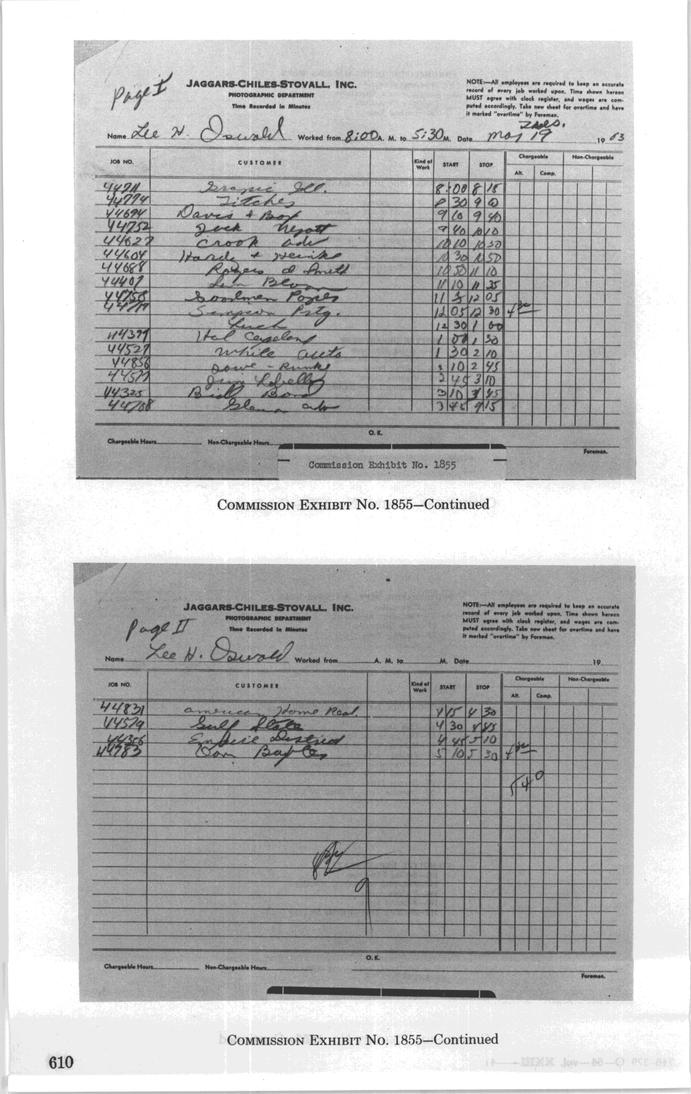 Page I
JAGGARS-CHILES-STOVALL, INC.
PHOTOGRAPHIC DEPARTMENT
Time Recorded in Minutes
NOTE:—All employees are required to keep an accurate
record of every job worked upon. Time shown hereon
MUST agree with clock register, and wages are com-
puted accordingly. Take new sheet for overtime and have
it marked "overtime" by Foreman.
Tues.
Name Lee H. Oswald Worked from 8:00 A. M. to 5:30 M. Date Mar 19 1963
JOB NO. CUSTOMER Kind of Work START STOP Chargeable Non-Chargeable
Alt. Comp.
8:00 8 15
44774 Titches 8 30 9 0
44694 Davis & 9 10 9 40
44752 Jack 9 40 10 10
44627 Crook adv 10 10 10 30
44604 Hardy & 10 30 10 50
44688 Rogers & Smith 10 50 11 10
44407 11 10 11 25
44758 Goodmen 12 05
Simpson Ptg. 12 05 12 30
Luch 12 30 1 00
44399 Hal Copeland 1 00 1 30
44527 White auto 1 30 2 10
44856 2 10 2 45
44577 2 45 3 10
44325 Bill Bond 3 10 3 45
44708 Glenn adv 3 45 4 15
O. K.
Chargeable Hours Non-Chargeable Hours
Foreman.
Commission Exhibit No. 1855
COMMISSION EXHIBIT NO. 1855—Continued
Page II
JAGGARS-CHILES-STOVALL, INC.
PHOTOGRAPHIC DEPARTMENT
Time Recorded in Minutes
NOTE:—All employees are required to keep an accurate
record of every job worked upon. Time shown hereon
MUST agree with clock register, and wages are com-
puted accordingly. Take new sheet for overtime and have
it marked "overtime" by Foreman.
Name Lee H. Oswald Worked from A. M. to M. Date 19
JOB NO. CUSTOMER Kind of Work START STOP Chargeable Non-Chargeable
Alt. Comp.
44831 american Home Real. 4 15 4 30
44529 Gulf State 4 30 4 45
44356 Empire District 4 45 5 10
44783 Com 5 10 5 30
540
O. K.
Chargeable Hours Non-Chargeable Hours
Foreman.
COMMISSION EXHIBIT NO. 1855—Continued
610